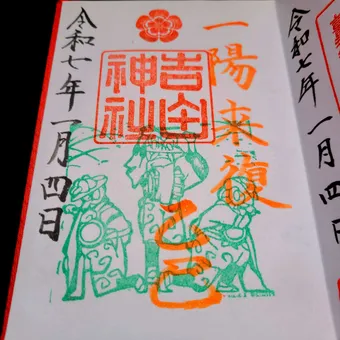 令和七年一月四日
一陽来復
乙巳
神社
令和七年一月四日